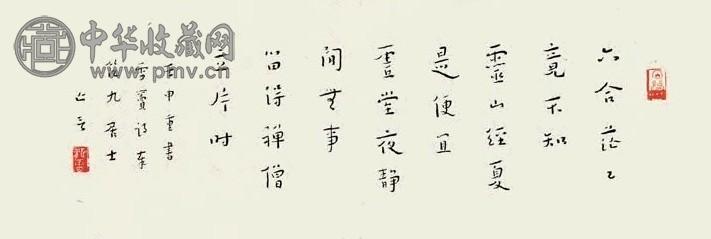 中华收藏网
www.pmv.cn
六合茫々
竟不知
靈山經夏
是便宜
虛堂夜靜
閒無事
留得禪僧
立片時
壬申重書
雪竇詩奉
九居士
亡言